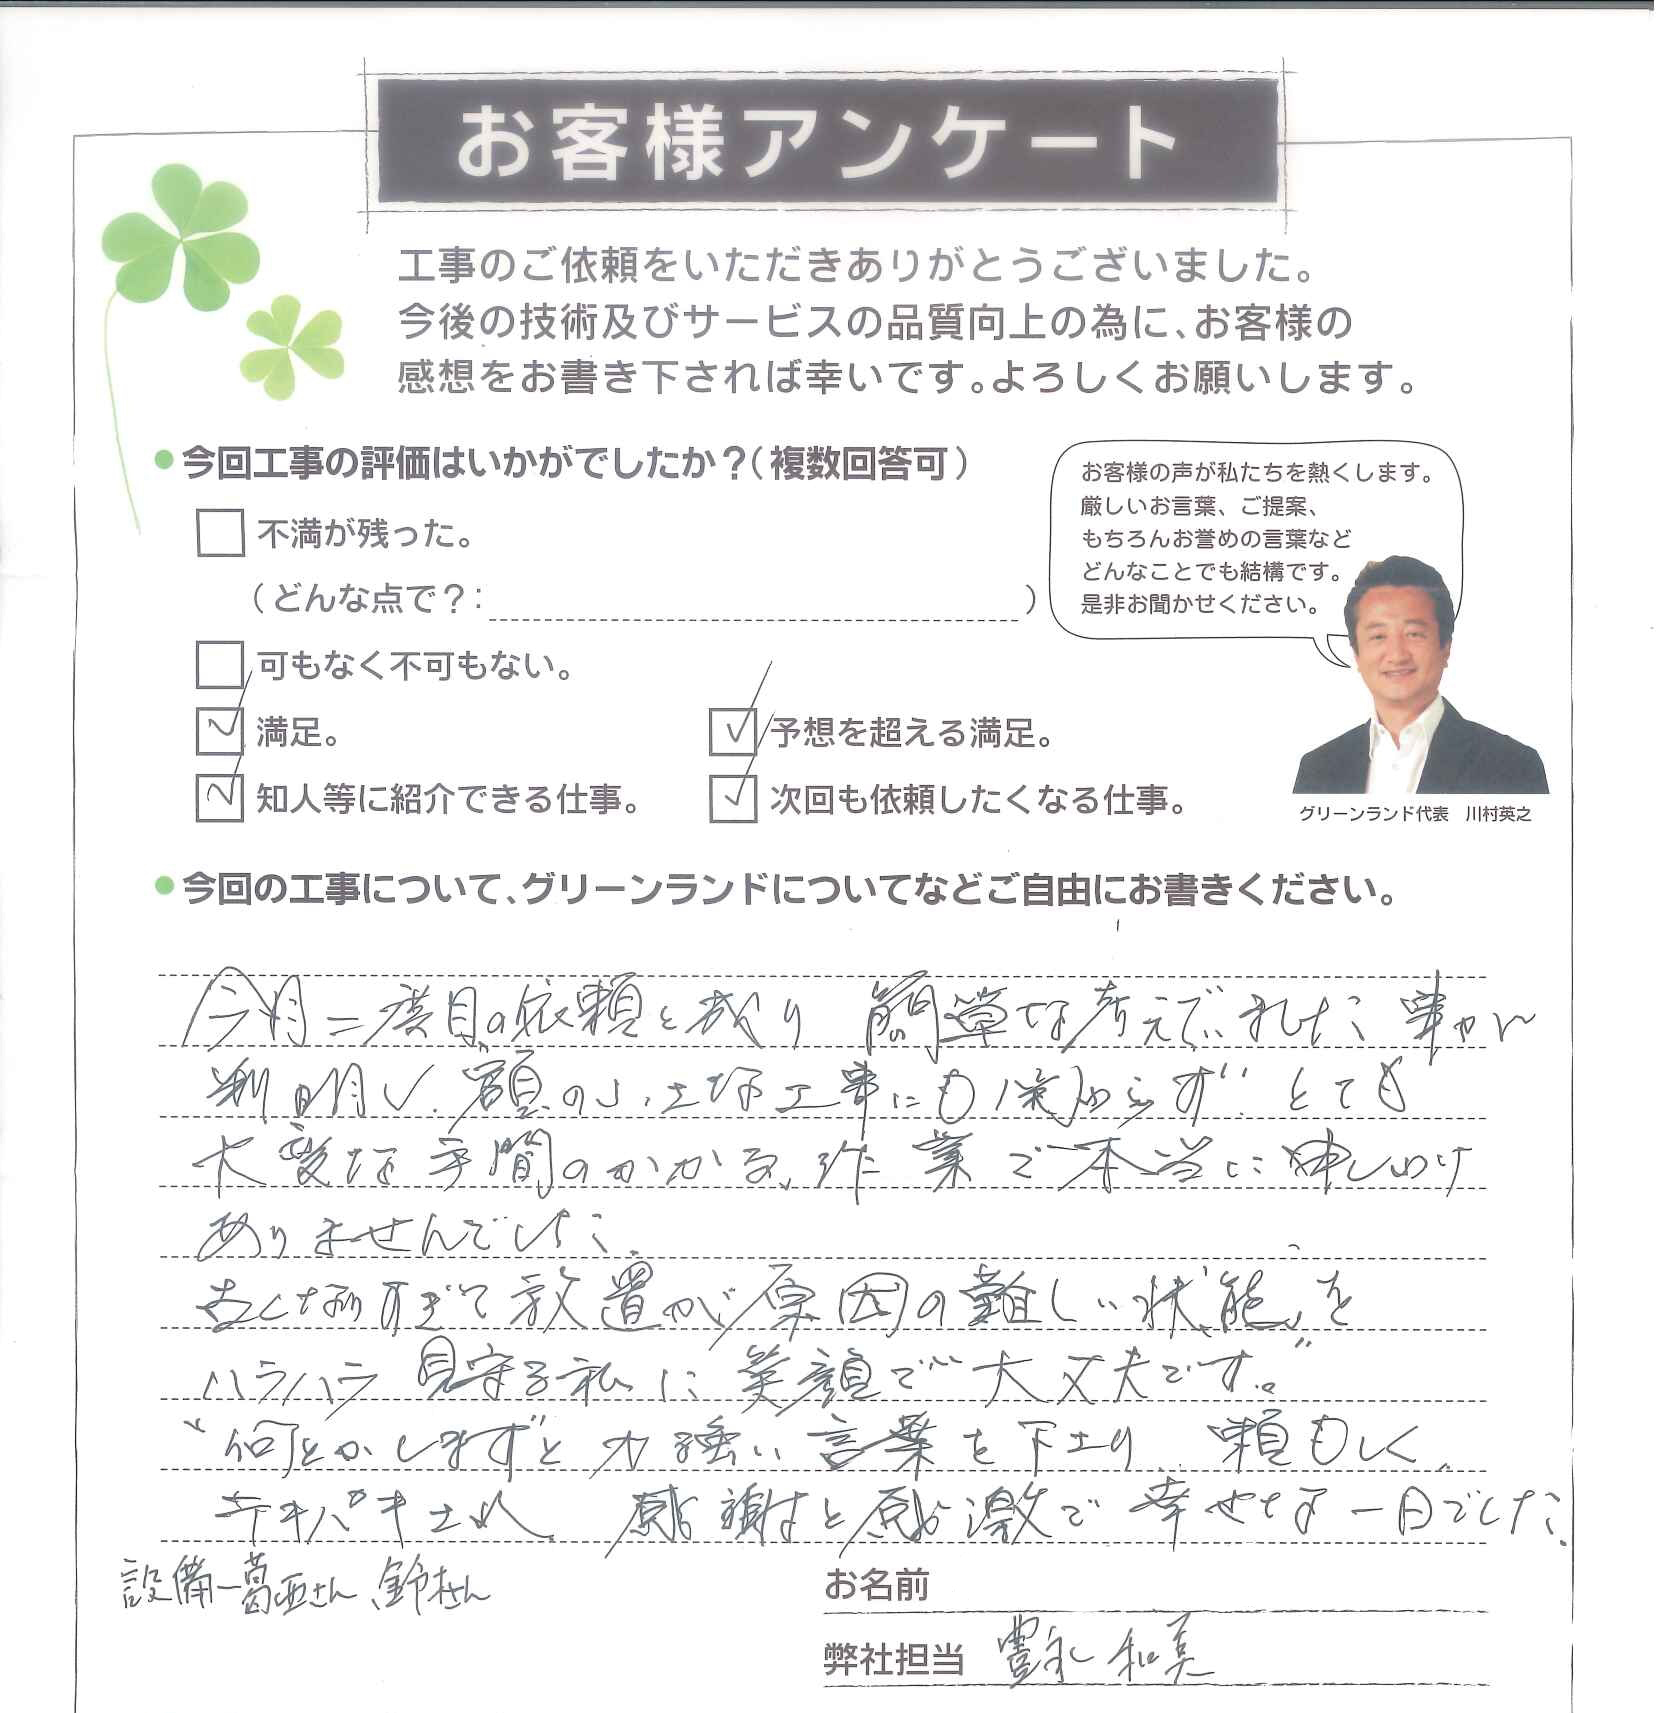 お客様アンケート
工事のご依頼をいただきありがとうございました。
今後の技術及びサービスの品質向上の為に、お客様の
感想をお書き下されば幸いです。よろしくお願いします。
●今回工事の評価はいかがでしたか？（複数回答可）
不満が残った。
（どんな点で？： ）
可もなく不可もない。
満足。
予想を超える満足。
知人等に紹介できる仕事。
次回も依頼したくなる仕事。
お客様の声が私たちを熱くします。
厳しいお言葉、ご提案、
もちろんお誉めの言葉など
どんなことでも結構です。
是非お聞かせください。
グリーンランド代表 川村英之
●今回の工事について、グリーンランドについてなどご自由にお書きください。
今月二度目の依頼と成り 簡単な考えで
判明し、額の小さな工事にも係わらず とても
大変な手間のかかる、作業で本当に申しわけ
ありませんでした。
古くなりすぎて放置が原因の難しい状態を
ハラハラ見守る私に笑顔で"大丈夫です。"
"何とかします"と力強い言葉を下さり、頼もしく、
テキパキされ、感謝と感激で幸せな一日でした。
設備－葛西さん、鈴木さん
お名前
弊社担当 豊永 和真